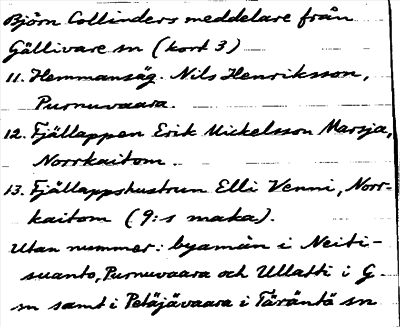 Björn Collinders meddelare från
Gällivare sn (kort 3)
11. Hemmansäg. Nils Henriksson,
Purnuvaara.
12. Fjällappen Erik Mickelsson Marsja,
Norrkaitom.
13. Fjällappshustrun Elli Venni, Norr-
kaitom (9:s maka).
Utan nummer: byamän i Neiti-
suanto, Purnuvaara och Ullatti i G-
sn samt i Petäjävaara i Täräntö sn